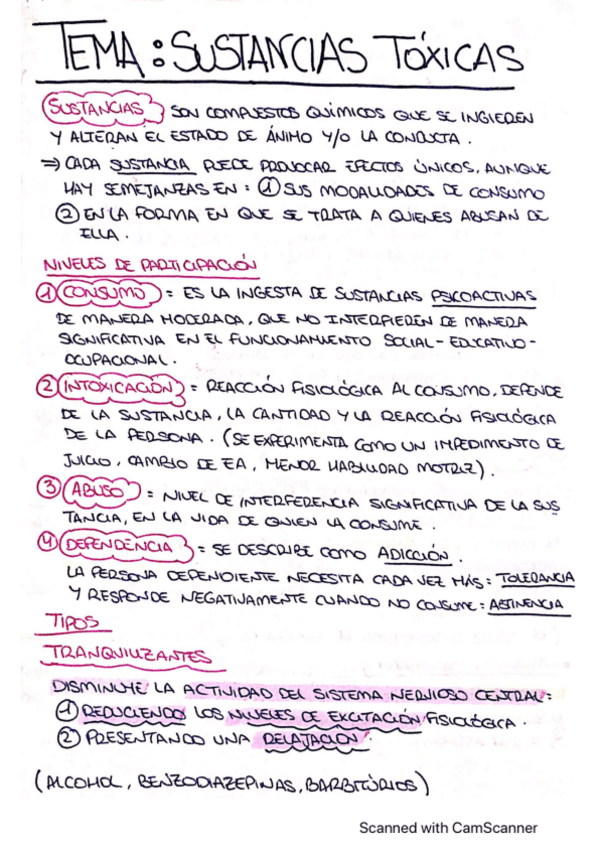 TEMA: SUSTANCIAS TÓXICAS
SUSTANCIAS SON COMPUESTOS QUÍMICOS QUE SE INGIEREN
Y ALTERAN EL ESTADO DE ÁNIMO Y/O LA CONDUCTA.
⇒ CADA SUSTANCIA PUEDE PROVOCAR EFECTOS ÚNICOS, AUNQUE
HAY SEMEJANZAS EN: ① SUS MODALIDADES DE CONSUMO
② EN LA FORMA EN QUE SE TRATA A QUIENES ABUSAN DE
ELLA.
NIVELES DE PARTICIPACIÓN
① CONSUMO = ES LA INGESTA DE SUSTANCIAS PSICOACTIVAS
DE MANERA MODERADA, QUE NO INTERFIEREN DE MANERA
SIGNIFICATIVA EN EL FUNCIONAMIENTO SOCIAL-EDUCATIVO-
OCUPACIONAL.
② INTOXICACIÓN = REACCIÓN FISIOLÓGICA AL CONSUMO, DEPENDE
DE LA SUSTANCIA, LA CANTIDAD Y LA REACCIÓN FISIOLÓGICA
DE LA PERSONA. (SE EXPERIMENTA COMO UN IMPEDIMENTO DE
JUICIO, CAMBIO DE EA, MENOR HABILIDAD MOTRIZ).
③ ABUSO = NIVEL DE INTERFERENCIA SIGNIFICATIVA DE LA SUS
TANCIA, EN LA VIDA DE QUIEN LA CONSUME.
④ DEPENDENCIA = SE DESCRIBE COMO ADICCIÓN.
LA PERSONA DEPENDIENTE NECESITA CADA VEZ MÁS: TOLERANCIA
Y RESPONDE NEGATIVAMENTE CUANDO NO CONSUME: ASTINENCIA
TIPOS
TRANQUILIZANTES
DISMINUYE LA ACTIVIDAD DEL SISTEMA NERVIOSO CENTRAL:
① REDUCIENDO LOS NIVELES DE EXCITACIÓN FISIOLÓGICA.
② PRESENTANDO UNA RELAJACIÓN.
(ALCOHOL, BENZODIAZEPINAS, BARBITÚRIOS)
Scanned with CamScanner